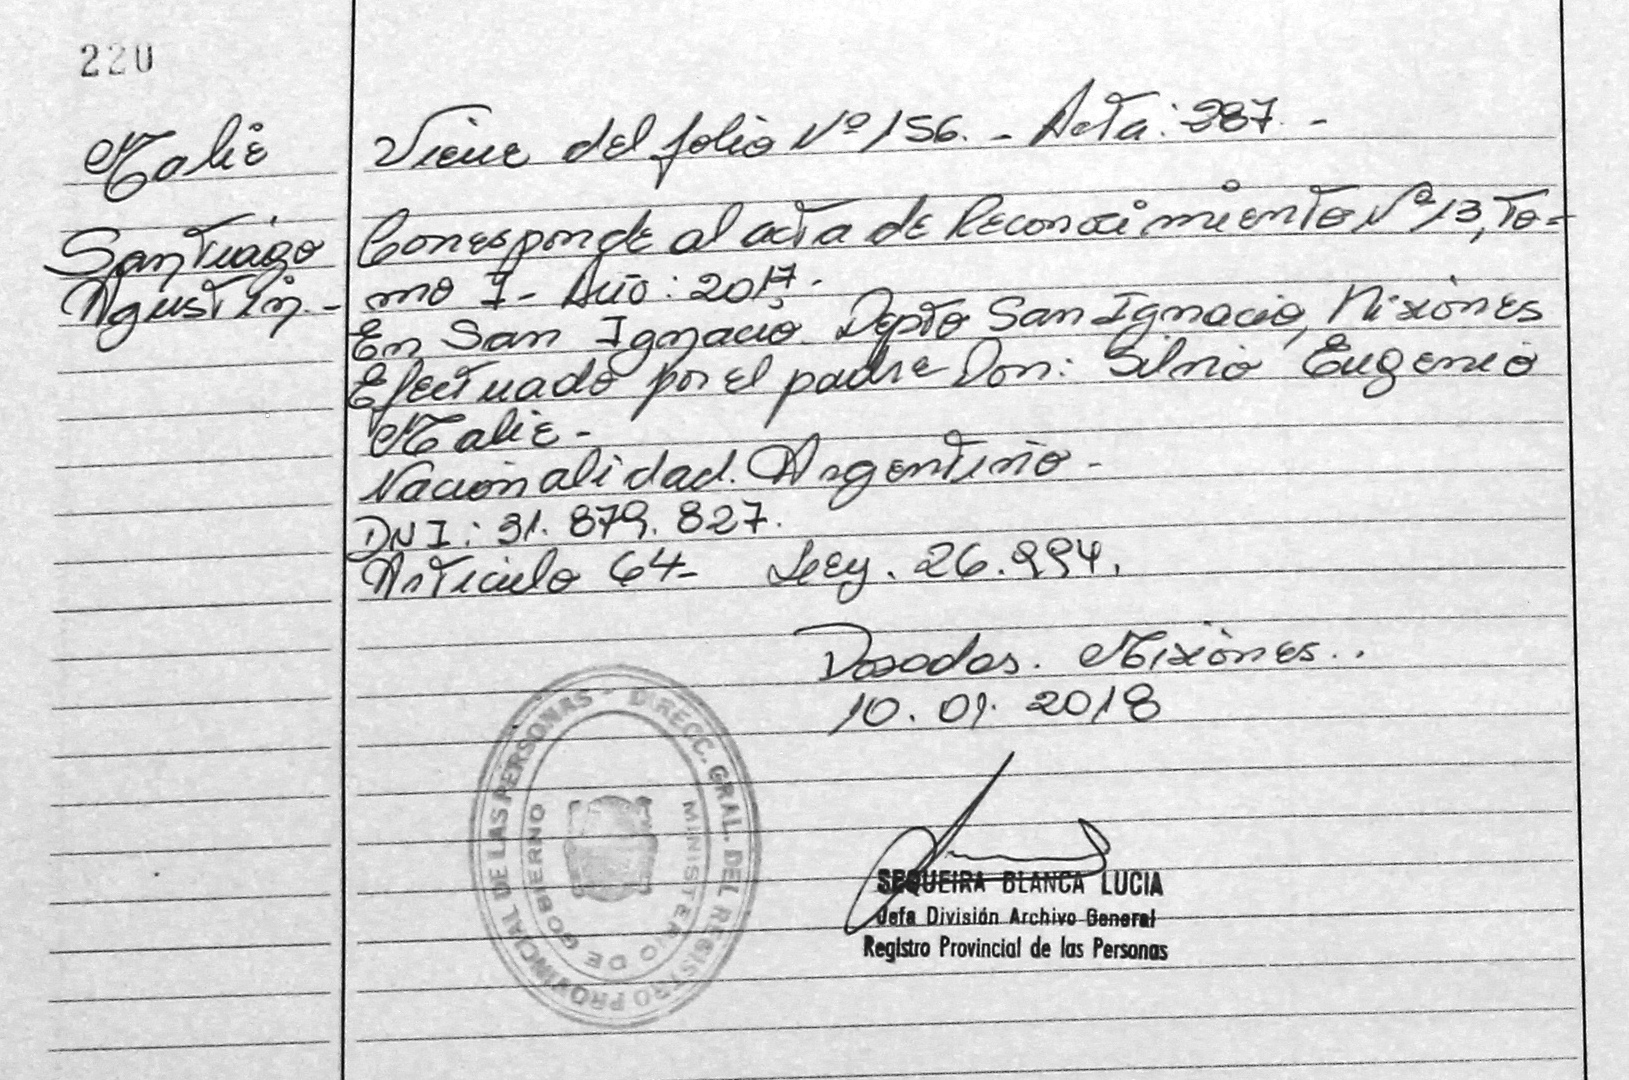 220
Malie
Santiago
Agustin.-
Viene del folio Nº 156. - Acta: 287. -
Corresponde al acta de Reconocimiento Nº 13, To=
mo I - Año: 2017.-
En San Ignacio. Depto San Ignacio, Misiones
Efectuado por el padre Don: Silvio Eugenio
Malie -
Nacionalidad. Argentino -
DNI: 31. 879. 827.
Articulo 64- Ley. 26.994.
Posadas. Misiones..
10. 01. 2018
DIRECC. GRAL. DEL REGISTRO PROVINCIAL DE LAS PERSONAS -
MINISTERIO DE GOBIERNO
SEQUEIRA BLANCA LUCIA
Jefa División Archivo General
Registro Provincial de las Personas